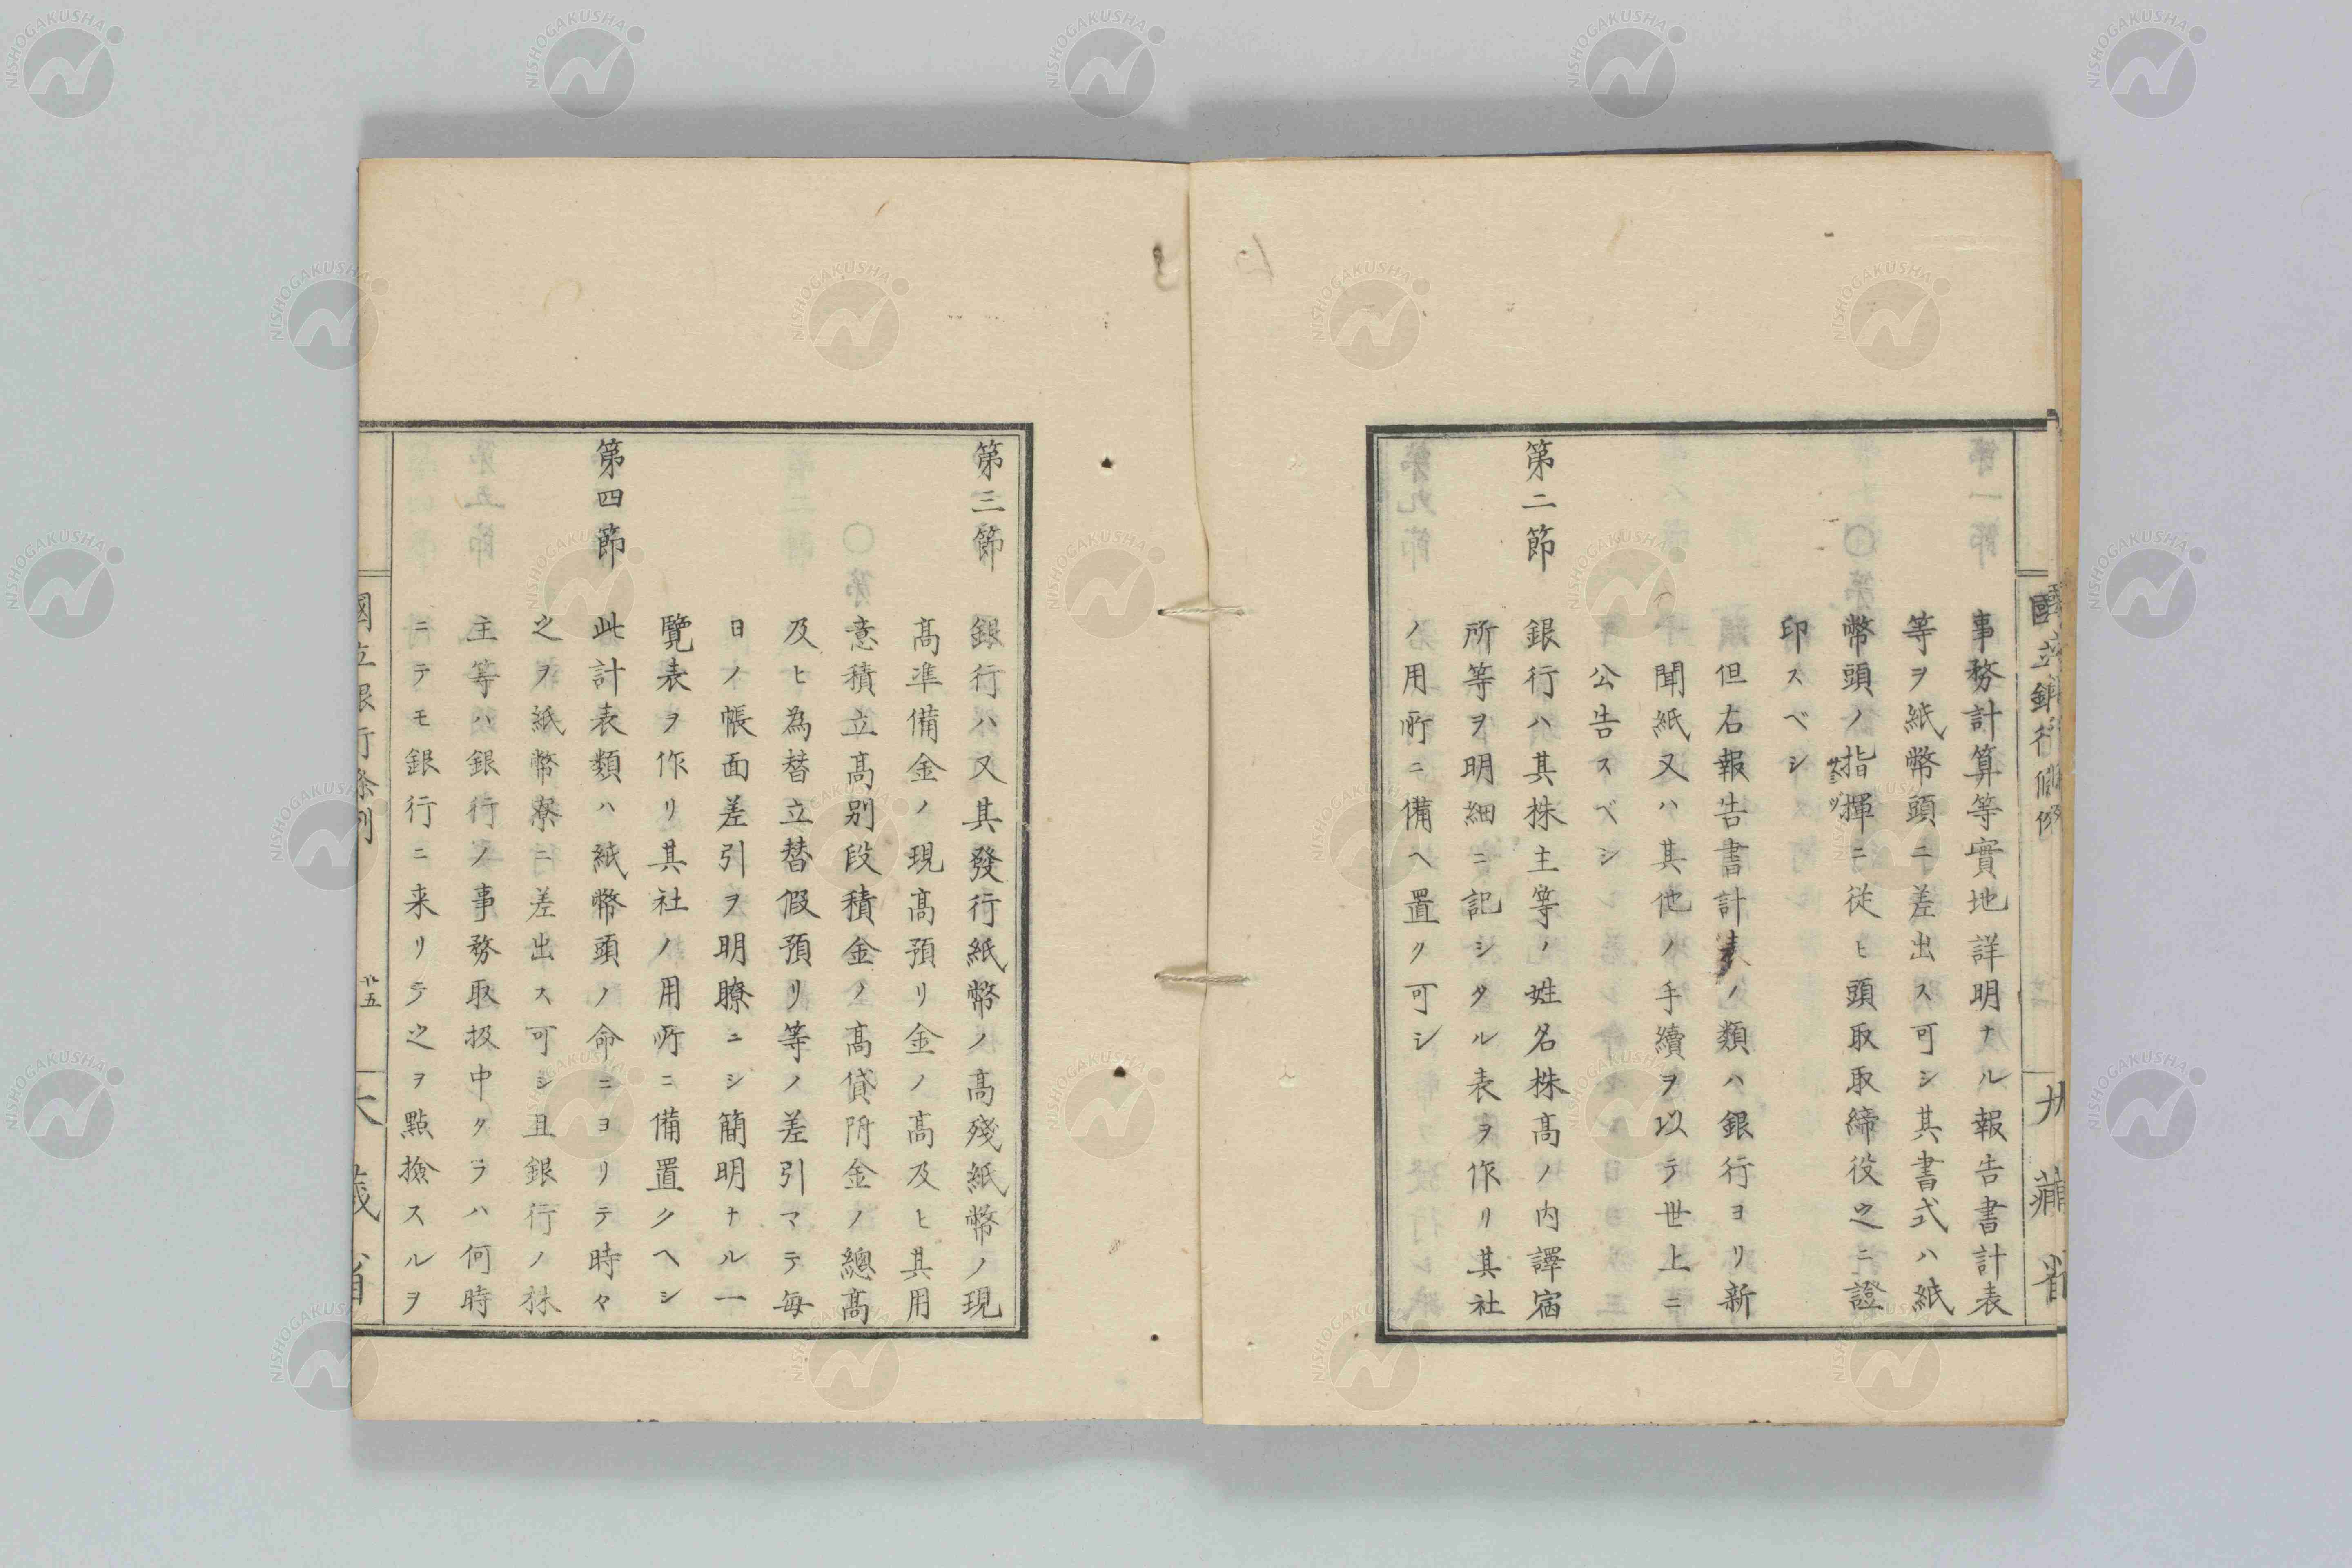 事務計算等實地詳明ナル報告書計表
等ヲ紙幣頭ニ差出ス可シ其書式ハ紙
幣頭ノ指揮ニ従ヒ頭取取締役之ニ證
印スベシ
但右報告書計表ノ類ハ銀行ヨリ新
聞紙又ハ其他ノ手續ヲ以テ世上ニ
公告スベシ
第二節 銀行ハ其株主等ノ姓名株高ノ内譯宿
所等ヲ明細ニ記シタル表ヲ作リ其社
ノ用所ニ備ヘ置ク可シ
第三節 銀行ハ又其發行紙幣ノ高殘紙幣ノ現
高準備金ノ現高預リ金ノ高及ヒ其用
意積立高別段積金ノ高貸附金ノ總高
及ヒ為替立替假預リ等ノ差引マテ毎
日ノ帳面差引ヲ明瞭ニシ簡明ナル一
覽表ヲ作リ其社ノ用所ニ備置クヘシ
第四節 此計表類ハ紙幣頭ノ命ニヨリテ時々
之ヲ紙幣寮ニ差出ス可シ且銀行ノ株
主等ハ銀行ノ事務取扱中クラハ何時
ニテモ銀行ニ来リテ之ヲ點撿スルヲ
國立銀行條例
廿五
大藏省
NISHOGAKUSHA